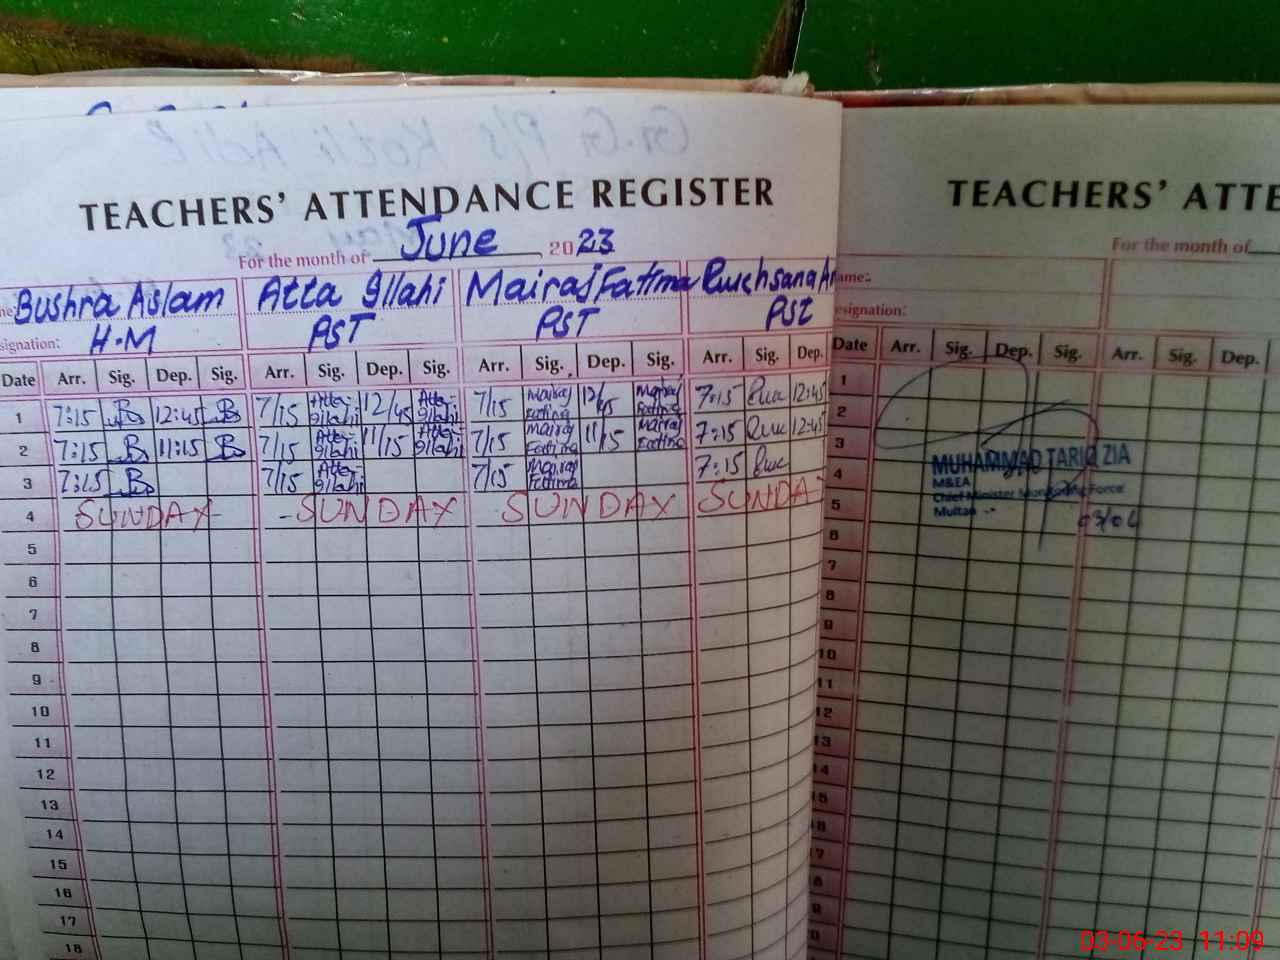 G.G P/s Kotli Adil
TEACHERS' ATTENDANCE REGISTER
For the month of June, 2023
Bushra Aslam Atta Illahi Mairaj Fatima
signation: H.M PST PST PST
Date Arr. Sig. Dep. Sig. Arr. Sig. Dep. Sig. Arr. Sig. Dep. Sig. Arr. Sig. Dep.
1 7:15 B 12:45 B 7/15 Atta Illahi 12/45 Atta Illahi 7/15 Mairaj Fatima 12/45 Mairaj Fatima 7:15 12:45
2 7:15 B 11:15 B 7/15 Atta Illahi 11/15 Atta Illahi 7/15 Mairaj Fatima 11/15 Mairaj Fatima 7:15 12:45
3 7:15 B 7/15 Atta Illahi 7/15 Mairaj Fatima 7:15
4 SUNDAY - SUNDAY SUNDAY SUNDAY
5
6
7
8
9
10
11
12
13
14
15
16
17
18
TEACHERS' ATTE
For the month of
ame:
esignation:
Date Arr. Sig. Dep. Sig. Arr. Sig. Dep.
1
2
3
4
5
6
7
8
9
10
11
12
13
14
15
16
17
MUHAMMAD TARIQ ZIA
M&EA
Chief Minister Monitoring Force
Multan
03/06
03-06-23 11:09